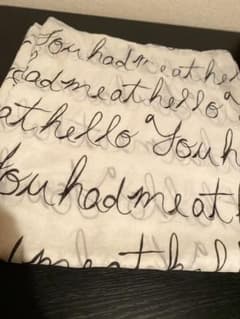 You had me at hel
had me at hello
at hello You h
You had me at
me at hel